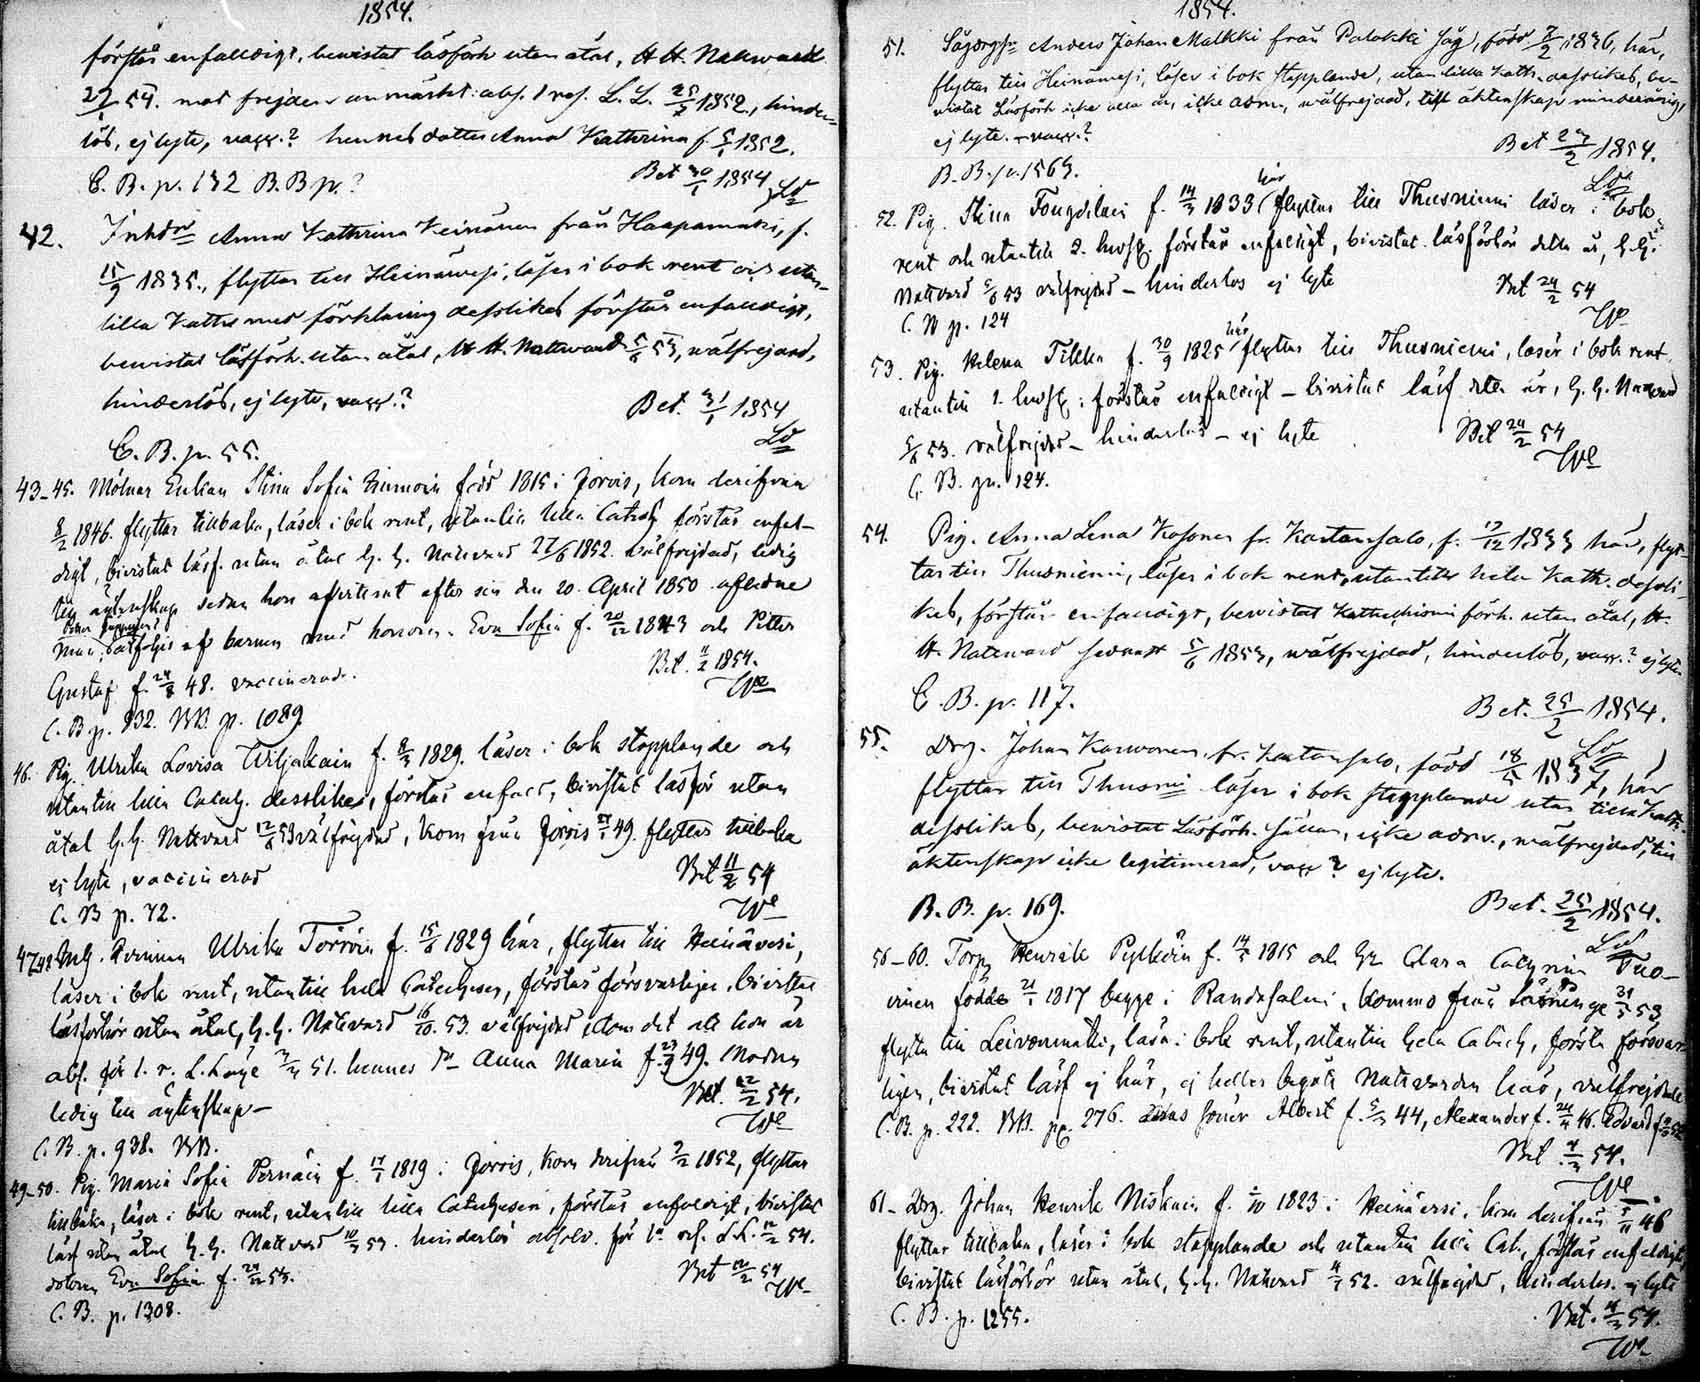 1854.
förstår enfalldigt, bewistat läsförh utan åtal, H. H. Nattward
22/1 54. med frejden anmärkt: abs. 1 res. L. L. 25/7 1852, hinder-
lös, ej lyte, vacc.? hennes dotter Anna Kathrina f. 5/1 1852.
C. B. p. 132 B. B p. ?
Bet 30/1 1854
Lö
42. Inhdr Anna Kathrina Keinänen från Haapamäki, f.
15/9 1835., flyttar till Heinäwesi, läser i bok rent och utan-
lilla Kattes med förklaring desslikes förstår enfalldigt,
bewistat läsförh. utan åtal, H. H. Nattward 5/6 53, wälfrejdad,
hinderlös, ej lyte, vacc.?
Bet. 31/1 1854
Lö
C. B. p. 55.
43-45. Mölnar Enkan Stina Sofia född 1815 i Jorois, kom derifrån
8/2 1846. flyttar tillbaka, läser i bok rent, utantill lilla Catech förstår enfal-
digt, bivistat läsf. utan åtal h. h. Nattvard 27/6 1852. välfrejdad, ledig
till äktenskap sedan hon afvittrat efter sin den 20. April 1850 aflidne
man; åtföljes af barnen med honom. Eva Sofia f. 20/12 1843 och Petter
Gustaf f. 24/8 48. vaccinerade.
Bet. 11/2 1854.
We
C. B p. 932. BB. p. 1089
46. Pig. Ulrika Lovisa Wiljakain f. 8/3 1829. läser i bok stapplande och
utantill lilla Catech. desslikes, förstår enfald, bivistat läsför utan
åtal h. h. Nattvard 12/6 53 välfrejdad, kom från Jorois 21/1 49. flyttar tillbaka
ej lyte, vaccinerad
Bet 11/2 54
We
C. B p. 72.
47,48 Ulrika Törröin f. 15/8 1829 här, flyttar till Heinävesi,
läser i bok rent, utantill hela Catechesen, förstår försvarligen, bivistat
läsförhör utan åtal, h. h. Nattvard 16/10 53. välfrejdad utom det att hon är
abs. för 1. r. L. Läge 51. hennes dr Anna Maria f. 23/9 49. Modren
ledig till äktenskap-
Bet. 22/2 54.
We
C. B. p. 938. BB.
49-50. Pig. Maria Sofia Pernäin f. 17/1 1819 i Jorois, kom derifrån 7/2 1852, flyttar
tillbaka, läser i bok rent, utantill lilla Catechesen, förstår enfaldigt, bivistat
läsf utan åtal h. h. Nattvard 10/3 53. hinderlös absolv. för 1a res. L. L. 12/2 54.
dotern Eva Sofia f. 24/12 53.
Bet 12/2 54
We
C. B. p. 1308.
1854.
51. Anders Johan Malkki från Palokki såg, född 8/2 1836, här,
flyttar till Heinäwesi, läser i bok stapplande, utan lilla Kath. desslikes, be-
wistat Läsförh icke alla år, icke adm., wälfrejdad, till äktenskap minderårig,
ej lyte. - vacc.?
Bet 27/2 1854.
B. B. p. 1563.
Lö
52. Pig. Stina Tougdilain f. 14/3 1833 här flyttar till Thusniemi läser i bok
rent och utantill 2. hvst. förstår enfaldigt, bivistat läsförhör detta år, h. h.
Nattvard 5/6 53 välfrejdad - hinderlös ej lyte
Bet 24/2 54
We
C. B p. 124
53. Pig. Helena Tikka f. 30/9 1825 här flyttar till Thusniemi, läser i bok rent
utantill 1. hvst. förstår enfaldigt - bivistat läsf detta år, h. h. Nattvard
5/6 53. välfrejdad - hinderlös - ej lyte
Bet 24/2 54
We
C. B. p. 124.
54. Pig. Anna Lena Kosonen fr. Kartansalo, f. 17/12 1833 här, flyt-
tar till Thusniemi, läser i bok rent, utantill hela Kath. dessli-
kes, förstår enfalldigt, bewistat Kathechismi förh. utan åtal, H.
H. Nattward sednast 5/6 1853, wälfrejdad, hinderlös, vacc.? ej lyte
C. B. p. 117.
Bet. 25/2 1854.
Lö
55. Drg. Johan Karwonen, fr. Kartansalo, född 18/5 1837, här
flyttar till Thusni läser i bok stapplande utan lilla Kath.
desslikes, bewistat Läsförh. sällan, icke adm., wälfrejdad, till
äktenskap icke legitimerad, vacc? ej lyte.
B. B. p. 169.
Bet. 25/2 1854.
Lö
56-60. Torp Henrik Pylköin f. 14/5 1815 och hr Clara Cathrina Tuo-
vinen födde 21/1 1817 begge i Randasalmi, kommo från 31/5 53,
flytta till Leivonmäki, läsa i bok rent, utantill hela Catech, förstå försvar-
ligen, bivistat läsf ej här, ej heller begått Nattvarden här, välfrejdade
C. B. p. 222. BB. p. 276. deras söner Albert f. 5/3 44, Alexander f. 24/4 46. Edvard f.
Bet. 4/3 54.
We
61- Drg. Johan Henrik Niskain f. 2/10 1823 i Heinävesi, kom derifrån 5/11 46
flyttar tillbaka, läser i bok stapplande och utantill lilla Cat., förstår enfaldigt,
bivistat läsförhör utan åtal, h. h. Nattvard 4/7 52. välfrejdad, hinderlös. ej lyte
C. B. p. 1255.
Bet. 4/3 54.
We